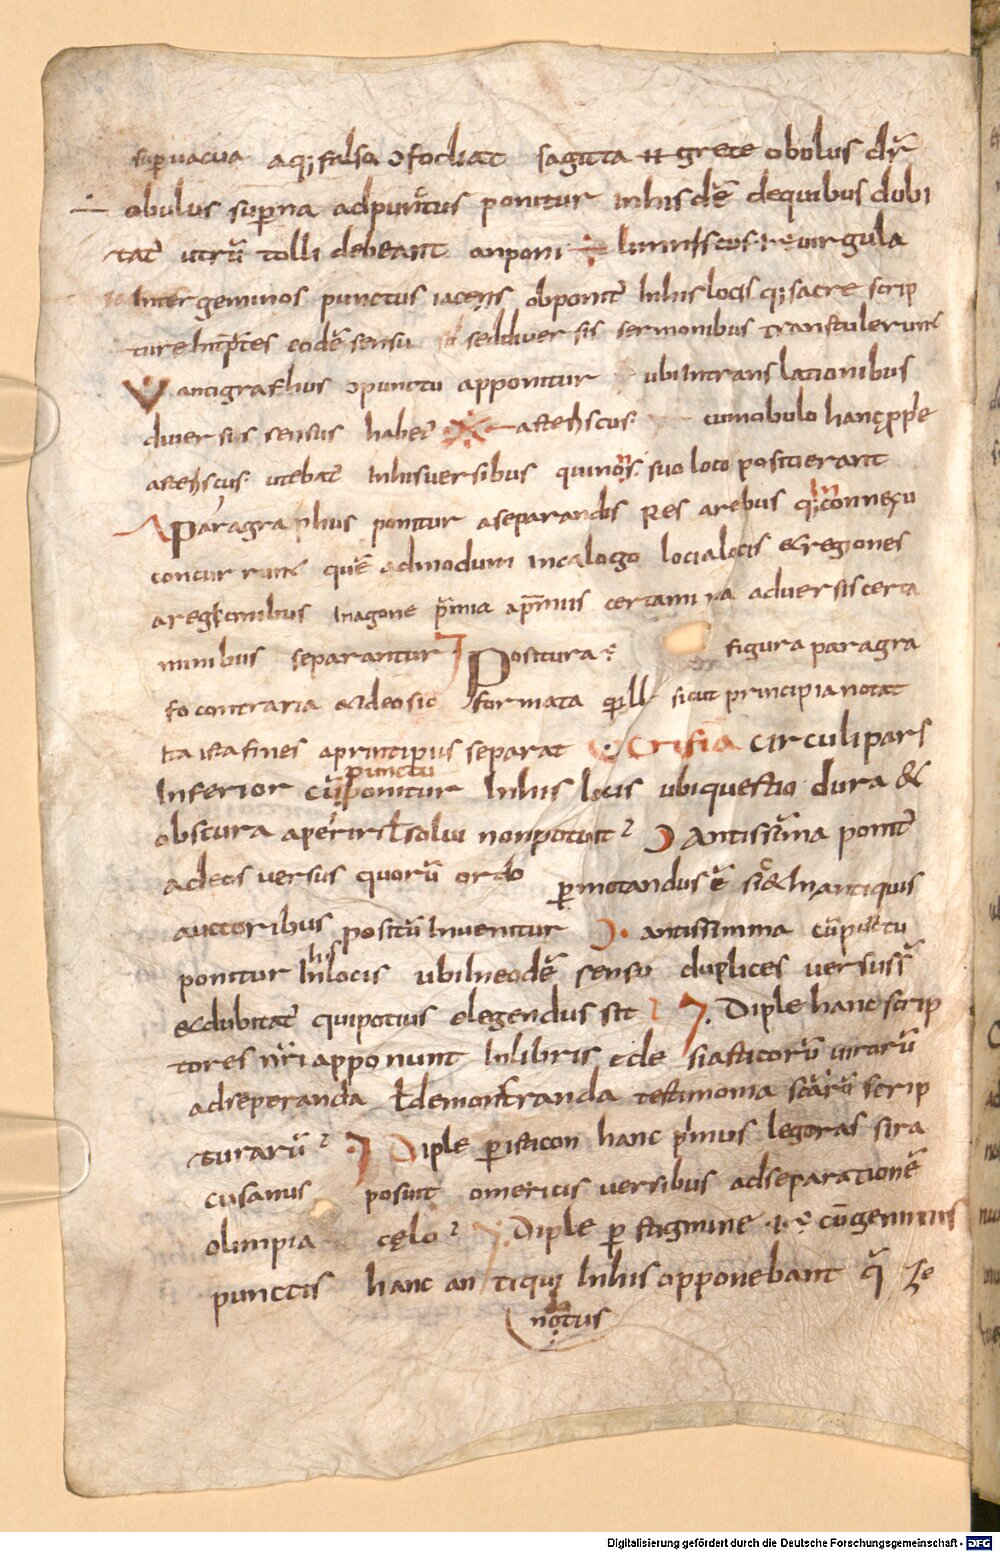 sup̄uacua aq; falsa ɔfodiat sagitta .n. grece obolus dr̄
÷ obulus sup̄na adpunctus ponitur inhis dē dequibus dubi
tat̄ utrū tolli debeant anponi ÷ limniscus .i. uirgula
inter geminos punctus iacens obponit̄ inhis locis q; sacre scrip
ture int̄p̄tes eodē sensu sed diuersis sermonibus transtulerunt
antigraphus ɔpunctu apponitur ubi intranslationibus
diuersus sensus habet̄ ※ asteriscus cumobulo hanc p̄p̄e
asteriscus utebat̄ inhisuersibus quinōs suo loco positi erant
Paragraphus ponitur aseparandis res arebus q; inconnexu
concurrunt quē admodum incalogo locialocis & regiones
aregionibus inagone p̄mia ap̄miis certamina aduersis certa
minibus separantur Positura ē figura paragra
fo contraria & ideo sic formata q̄ ill̄ sicut principia notat
ita ista fines aprincipiis separat Crifia circuli pars
inferior cū punctu ponitur inhis locis ubi questio dura &
obscura aperiri t̄ solui nonpotuit ? Ↄ Antissīma ponit̄
ad eos uersus quorū ordo p̄motandus ē sic & in antiquis
auctoribus positū inuenitur Ↄ. antissimma cū punctu
ponitur in his locis ubi ineodē senso duplices uersus s̄
& dubitat̄ qui potius elegendus sit 7. Diple hanc scrip
tores nr̄i apponunt inlibris ecclesiasticorū uirorū
adseperanda t̄ demonstranda testimonia scārū scrip
turarū ? Diple p̄isticon hanc p̄mus legoras sira
cusanus posuit omericis uersibus adseparationē
olimpia cęlo ? Diple p̄ stigmine .i. ē cū geminis
punctis hanc antiqui inhis apponebant q̄ Ze
notus
Digitalisierung gefördert durch die Deutsche Forschungsgemeinschaft - DFG